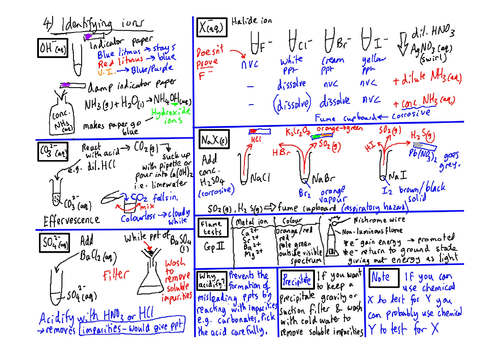 4) Identifying ions
OH⁻(aq)
Indicator paper
Blue litmus → stays
Red litmus → blue
U.I. → Blue/Purple
damp indicator paper
conc. NH₃
NH₃(g) + H₂O(l) → NH₄OH(aq)
makes paper go blue
Hydroxide ions
CO₃²⁻(aq)
React with acid → CO₂(g)
e.g. dil. HCl
suck up with pipette or pour into Ca(OH)₂
i.e. limewater
CO₃²⁻(aq)
mix
CO₂ falls in
Colourless → cloudy white
Effervescence
SO₄²⁻(aq)
Add BaCl₂(aq)
SO₄²⁻(aq)
White ppt of BaSO₄(s)
Filter
Wash to remove soluble impurities
Acidify with HNO₃ or HCl
→ removes impurities - would give ppt
X⁻(aq)
Halide ion
F⁻ Cl⁻ Br⁻ I⁻
dil. HNO₃
AgNO₃(aq)
(swirl)
Doesn't prove F⁻
nvc white ppt cream ppt yellow ppt
- dissolve nvc nvc + dilute NH₃(aq)
- (dissolve) dissolve nvc + conc. NH₃(aq)
Fume cupboard ← corrosive
NaX(s)
Add conc. H₂SO₄
(corrosive)
HCl
NaCl
K₂Cr₂O₇ orange → green
SO₂(g)
HBr
NaBr
Br₂ orange vapour
SO₂(g)
H₂S(g)
Pb(NO₃)₂ goes grey.
HI
NaI
I₂ brown/black solid
SO₂, H₂S ⇒ fume cupboard (respiratory hazard)
Flame tests
Gp II
Metal ion Colour
Ca²⁺ Orange/red
Sr²⁺ red
Ba²⁺ pale green
Mg²⁺ outside visible spectrum
Nichrome wire
Non-luminous flame
*e⁻ gain energy → promoted
*e⁻ return to ground state giving out energy as light
Why acidify?
Prevents the formation of misleading ppts by reacting with impurities e.g. carbonates, pick the acid carefully.
Precipitate
If you want to keep a precipitate gravity or suction filter & wash with cold water to remove soluble impurities
Note
If you can use chemical X to test for Y you can probably use chemical Y to test for X